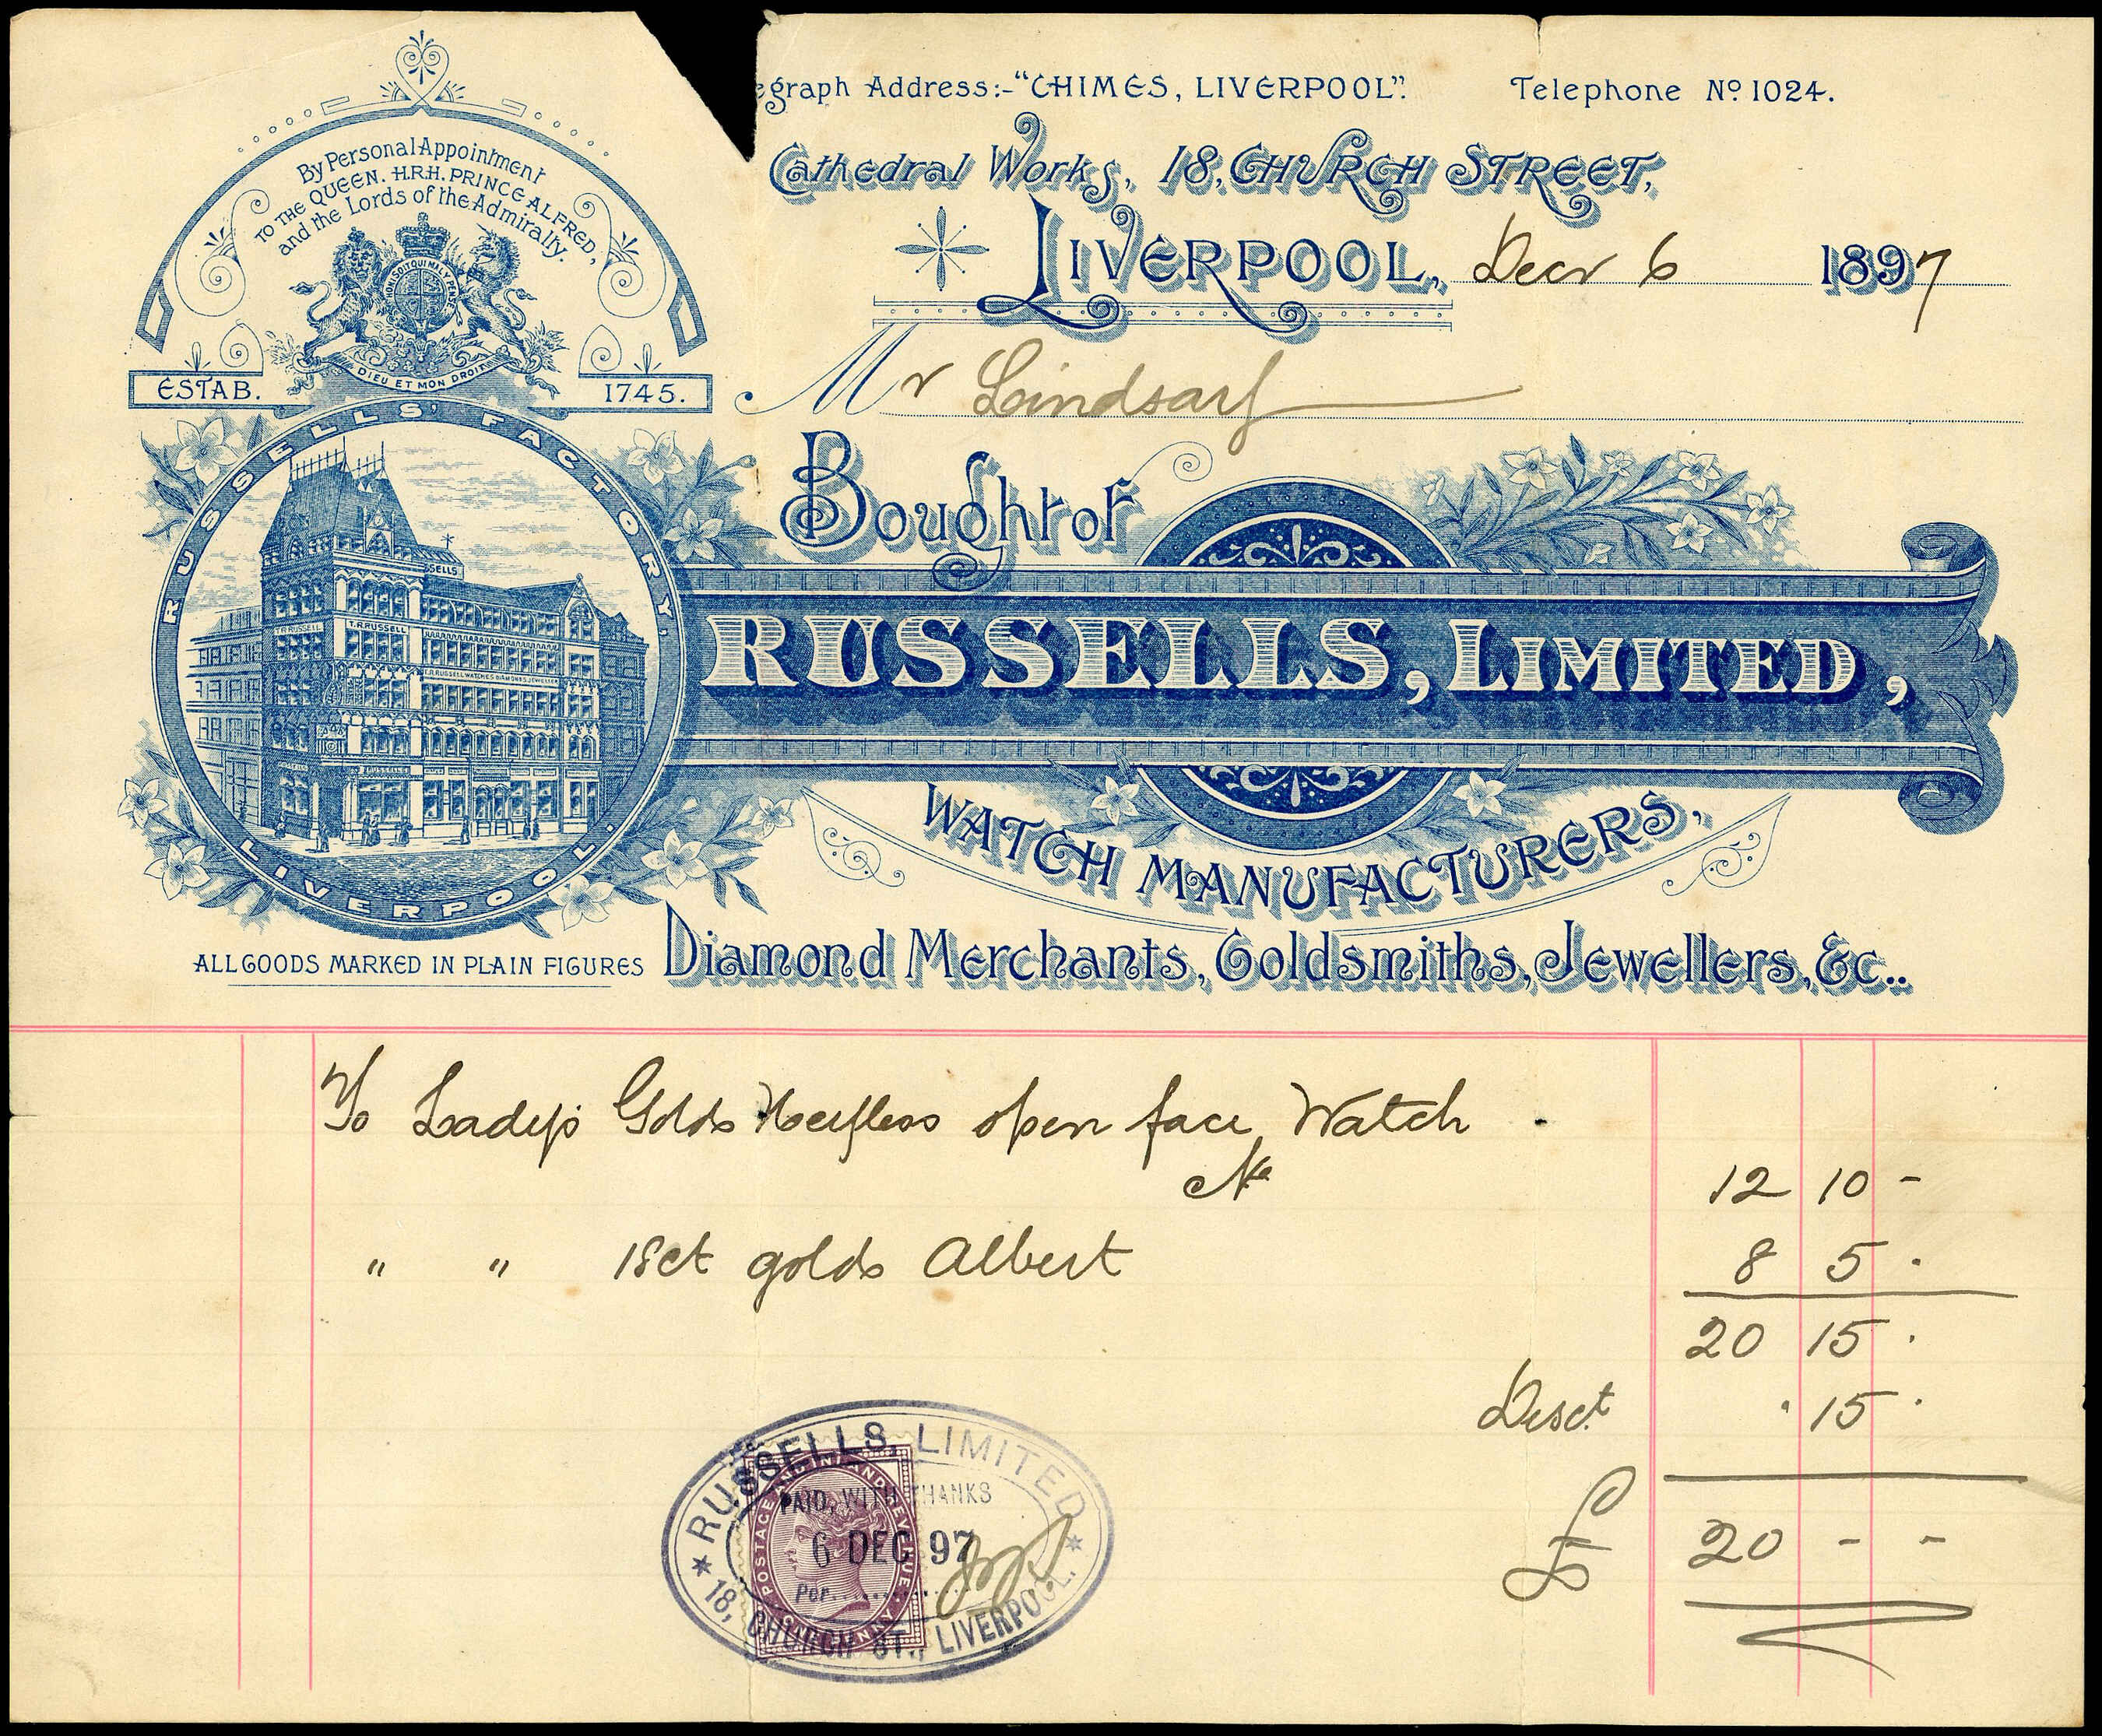 egraph Address:-"CHIMES, LIVERPOOL". Telephone Nº 1024.
Cathedral Works, 18, CHURCH STREET,
LIVERPOOL, Decr 6 1897
By Personal Appointment
TO THE QUEEN. H.R.H. PRINCE ALFRED,
and the Lords of the Admiralty.
HONI SOIT QUI MAL Y PENSE
DIEU ET MON DROIT
ESTAB. 1745.
Mr Lindsay
RUSSELLS' FACTORY,
LIVERPOOL.
SELLS
T.R.RUSSELL
T.R.RUSSELL
T.R.RUSSELL WATCHES DIAMONDS JEWELLER
RUSSELLS
Bought of
RUSSELLS, LIMITED,
WATCH MANUFACTURERS,
ALL GOODS MARKED IN PLAIN FIGURES
Diamond Merchants, Goldsmiths, Jewellers, &c..
To Ladys Gold Keyless open face Watch
No 12 10 -
" " 18ct gold Albert 8 5 .
20 15 .
Disct . 15 .
£ 20 - -
RUSSELLS, LIMITED
PAID, WITH THANKS
6 DEC 97
Per
18, CHURCH ST., LIVERPOOL.
POSTAGE AND INLAND REVENUE
ONE PENNY